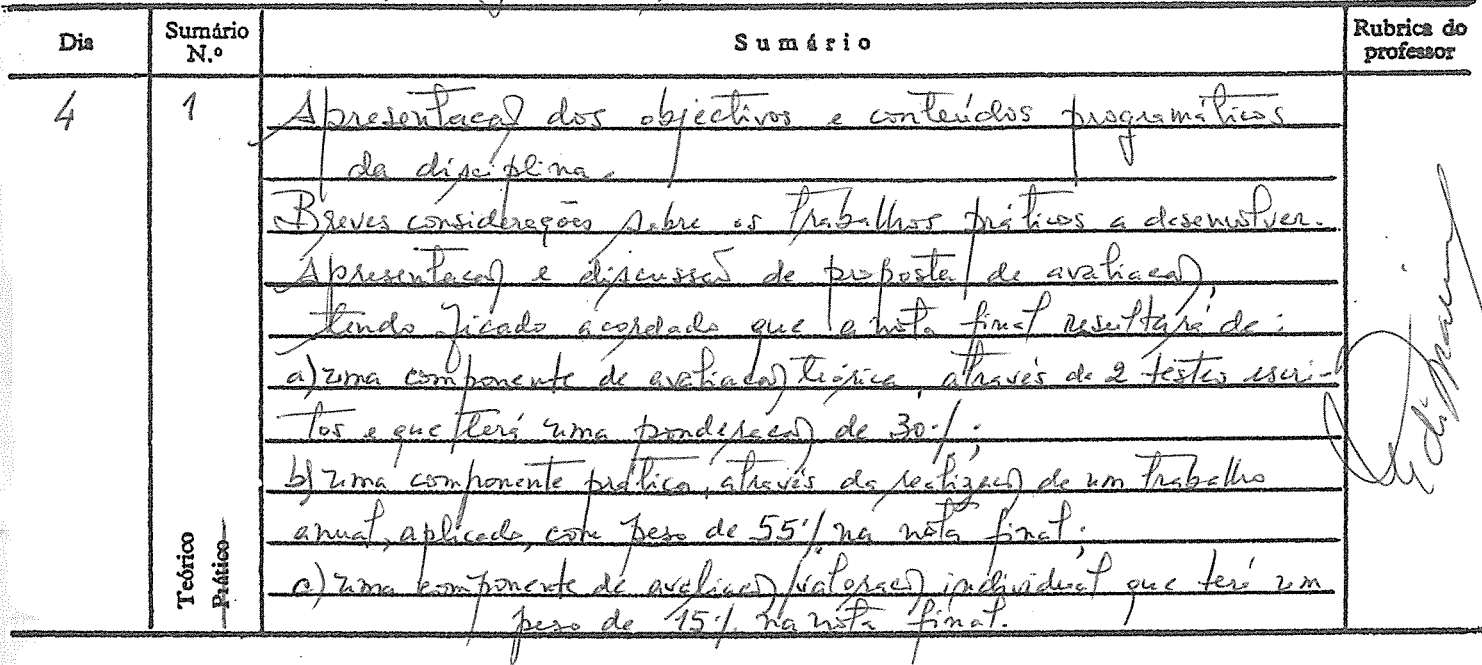 Dia
Sumário N.º
Sumário
Rubrica do professor
4
1
Apresentação dos objectivos e conteúdos programáticos
da disciplina.
Breves considerações sobre os trabalhos práticos a desenvolver.
Apresentação e discussão de proposta de avaliação,
tendo ficado acordado que a nota final resultará de:
a) uma componente de avaliação teórica, através de 2 testes escri-
tos e que terá uma ponderação de 30%;
b) uma componente prática, através da realização de um trabalho
anual, aplicado, com peso de 55% na nota final;
c) uma componente de avaliação/valoração individual que terá um
peso de 15% na nota final.
Teórico
Prático